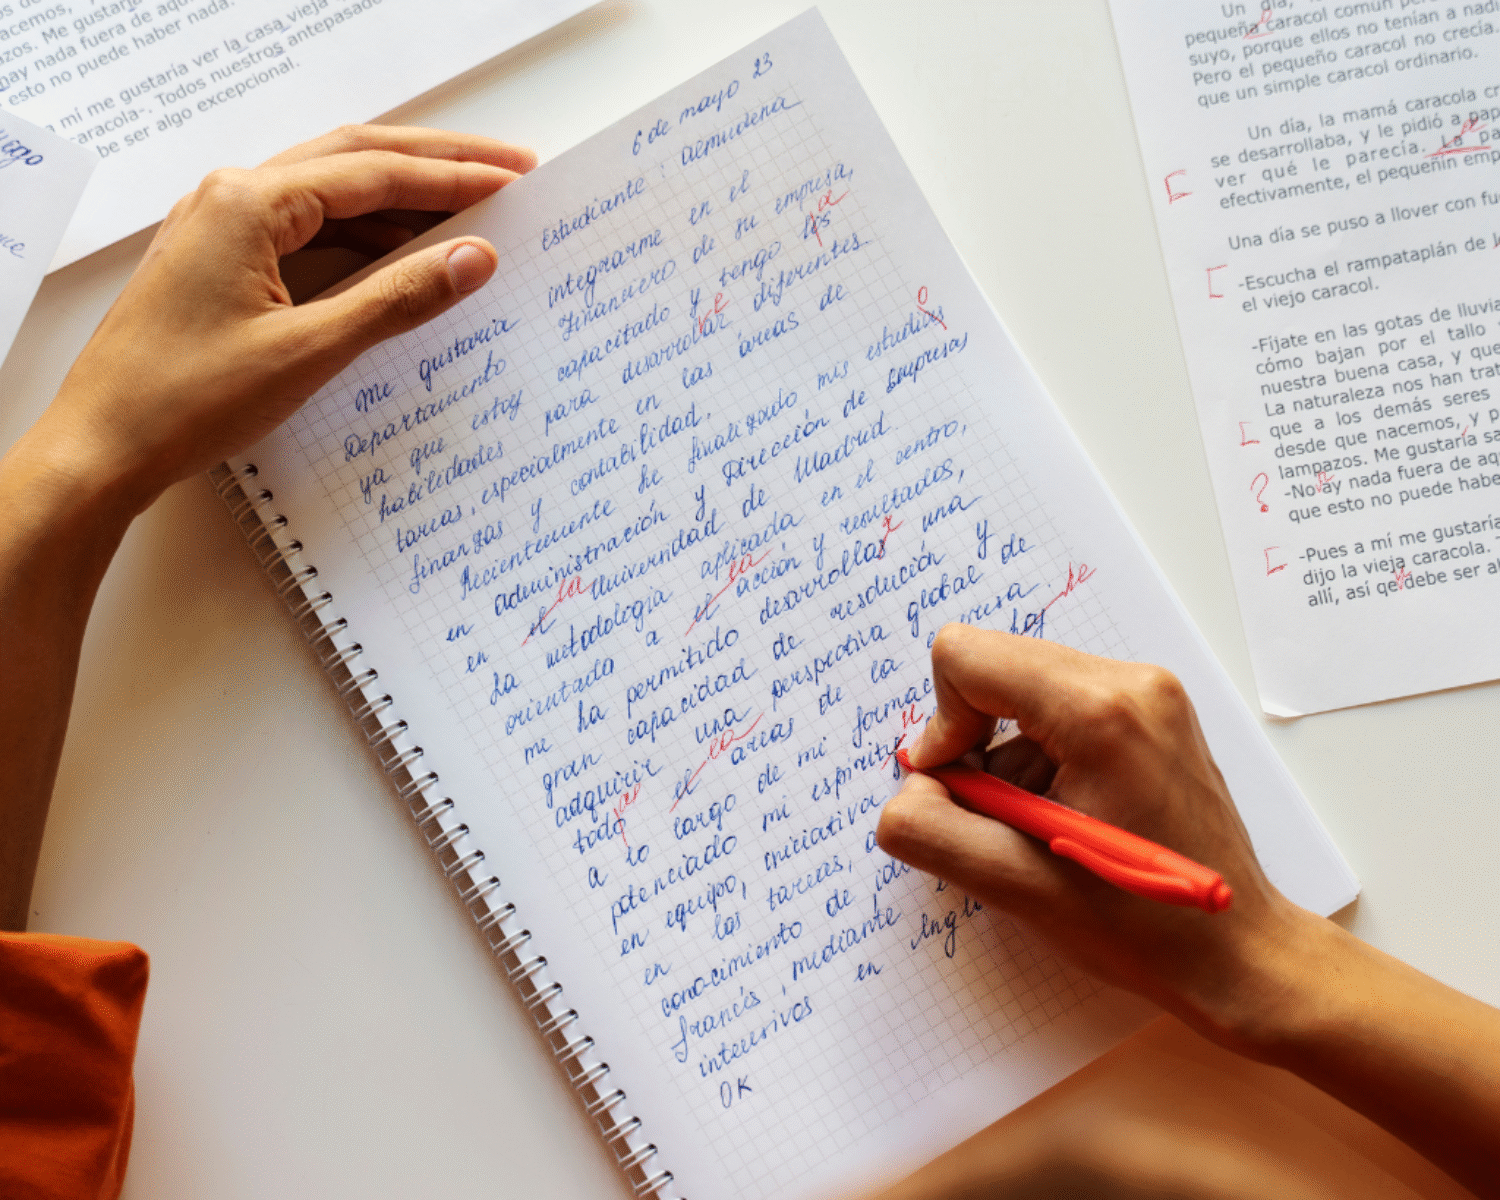 nacemos,
azos. Me gustaría
hay nada fuera de aqu
esto no puede haber nada.
a mí me gustaría ver la casa vieja
caracola-. Todos nuestros antepasado
be ser algo excepcional.
6 de mayo 23
Estudiante: aemudena
Me gustaría integrarme en el
Departamento Financiero de su empresa,
ya que estoy capacitado y tengo los
a
habilidades para desarrollar diferentes
e
tareas, especialmente en las áreas de
finanzas y contabilidad.
Recientemente he finalizado mis estudias
o
en administración y Dirección de Empresas
en el Universidad de Madrid.
la
La metodología aplicada en el centro,
orientada a el acción y resultados,
la
me ha permitido desarrollar una
r
gran capacidad de resolución y
adquirir una perspectiva global de
todo el áreas de la empresa.
la
a lo largo de mi formac hay
se
potenciado mi espíritu
en equipo, iniciativa
en las tareas, a
conocimiento de idi
francés, mediante e
intensivos en Ingl
OK
Un día,
pequeña caracol común per
suyo, porque ellos no tenían a nadi
Pero el pequeño caracol no crecía.
que un simple caracol ordinario.
Un día, la mamá caracola cr
se desarrollaba, y le pidió a pap
ver qué le parecía. Lo pa
efectivamente, el pequeñín emp
Una día se puso a llover con fue
-Escucha el rampataplán de l
el viejo caracol.
-Fíjate en las gotas de lluvia
cómo bajan por el tallo
nuestra buena casa, y que
La naturaleza nos han trat
que a los demás seres
desde que nacemos, y p
lampazos. Me gustaría sa
?
-No ay nada fuera de aq
que esto no puede habe
-Pues a mí me gustaría
dijo la vieja caracola. -
allí, así qe debe ser al